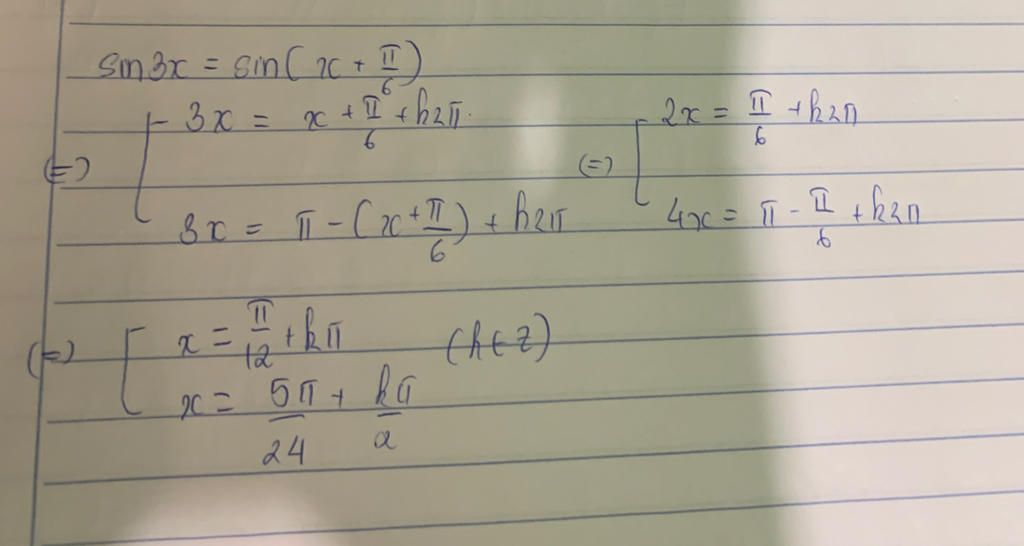 sin3x = sin(x + π/6)
(=) [ 3x = x + π/6 + k2π (=) [ 2x = π/6 + k2π
3x = π - (x + π/6) + k2π 4x = π - π/6 + k2π
(=) [ x = π/12 + kπ (k ∈ Z)
x = 5π/24 + kπ/2